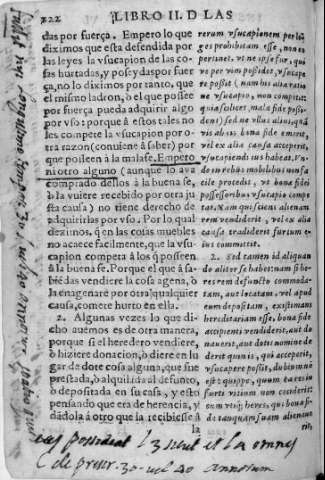 222 LIBRO II. D LAS
das por fuerça. Empero lo que
diximos que esta defendida por
las leyes la vsucapion de las co-
sas hurtadas, y posseydas por fuer
ça, no lo diximos por tanto, que
el mismo ladron, ò el que possee
por fuerça pueda adquirir algo
por vso: porque à estos tales no
les compete la vsucapion por o-
tra razon (conuiene à saber) por
que posseen à la malafe. Empero
ni otro alguno (aunque lo aya
comprado dellos à la buena fe,
ò la vuiere recebido por otra ju
sta causa) no tiene derecho de
adquirirlas por vso. Por lo qual
dezimos, q̃ en las cosas muebles
no acaece facilmente, que la vsu-
capion competa à los q̃ posseen
à la buena fe. Porque el que à sa-
biẽdas vendiere la cosa agena, ò
la enagenare por otra qualquier
causa, comete hurto en ella.
2. Algunas vezes lo que di-
cho auemos es de otra manera,
porque si el heredero vendiere,
ò hiziere donacion, ò diere en lu
gar de dote cosa alguna, que fue
prestada, ò alquilada al defunto,
ò depositada en su casa, y esto
pensando que era de herencia, y
dãdola à otro que la recibiesse à
rerum vsucapionem per lõ-
ges prohibitam esse, non eò
pertinet, vt ne ipse fur, qui
ve per vim possidet, vsucape
re possit (nam his alia ratio
ne vsucapio, non competit:
quia scilicet, mala fide possi-
dent) sed ne vllus alius, quã
vis ab eis bona fide emerit,
vel ex alia causa acceperit,
vsucapiendi ius habeat. Vn-
de in rebus mobilibus non fa
cile procedit, vt bonæ fidei
possessoribus vsucapio compe
tat. Nam qui sciens alienam
rem vendiderit, vel ex alia
causa tradiderit furtum e-
ius committit.
2. Sed tamen id aliquan
do aliter se habet: nam si hæ-
res rem defuncto commoda-
tam, aut locatam, vel apud
eum depositam, existimans
hereditariam esse, bona fide
accipienti vendiderit, aut do
nauerit, aut dotis nomine de
derit
quin is, qui acceperit,
vsucapere possit, dubium nõ
est: quippe, quum ea res in
vitium furti non ceciderit:
cum vtiq; hæres, qui bona fi-
de tanquam suam alienaue
rit,